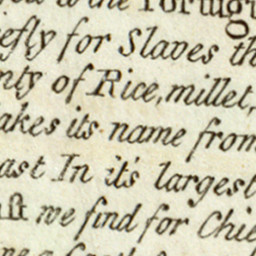 to the Portugu
efly for Slaves th
nty of Rice, millet,
akes its name from
ast In it's largest
ſt we find for Chie